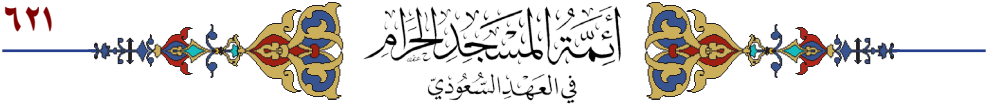 ٦٢١
أَئِمَّةُ المَسْجِدِ الحَرَامِ
في العَهْدِ السُّعُودِيّ